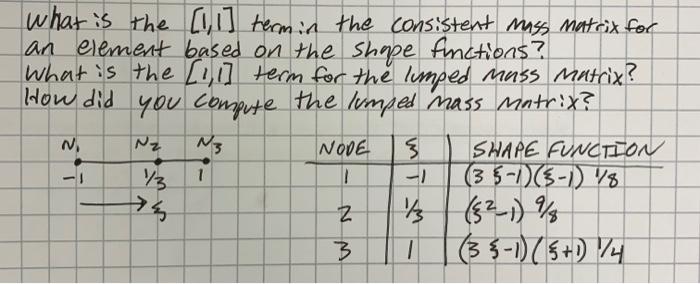 What is the [1,1] term in the consistent mass matrix for
an element based on the shape functions?
What is the [1,1] term for the lumped mass matrix?
How did you compute the lumped mass matrix?
N₁ N₂ N₃
-1 1/3 1
→ξ
NODE ξ SHAPE FUNCTION
1 -1 (3ξ-1)(ξ-1) 1/8
2 1/3 (ξ²-1) 9/8
3 1 (3ξ-1)(ξ+1) 1/4